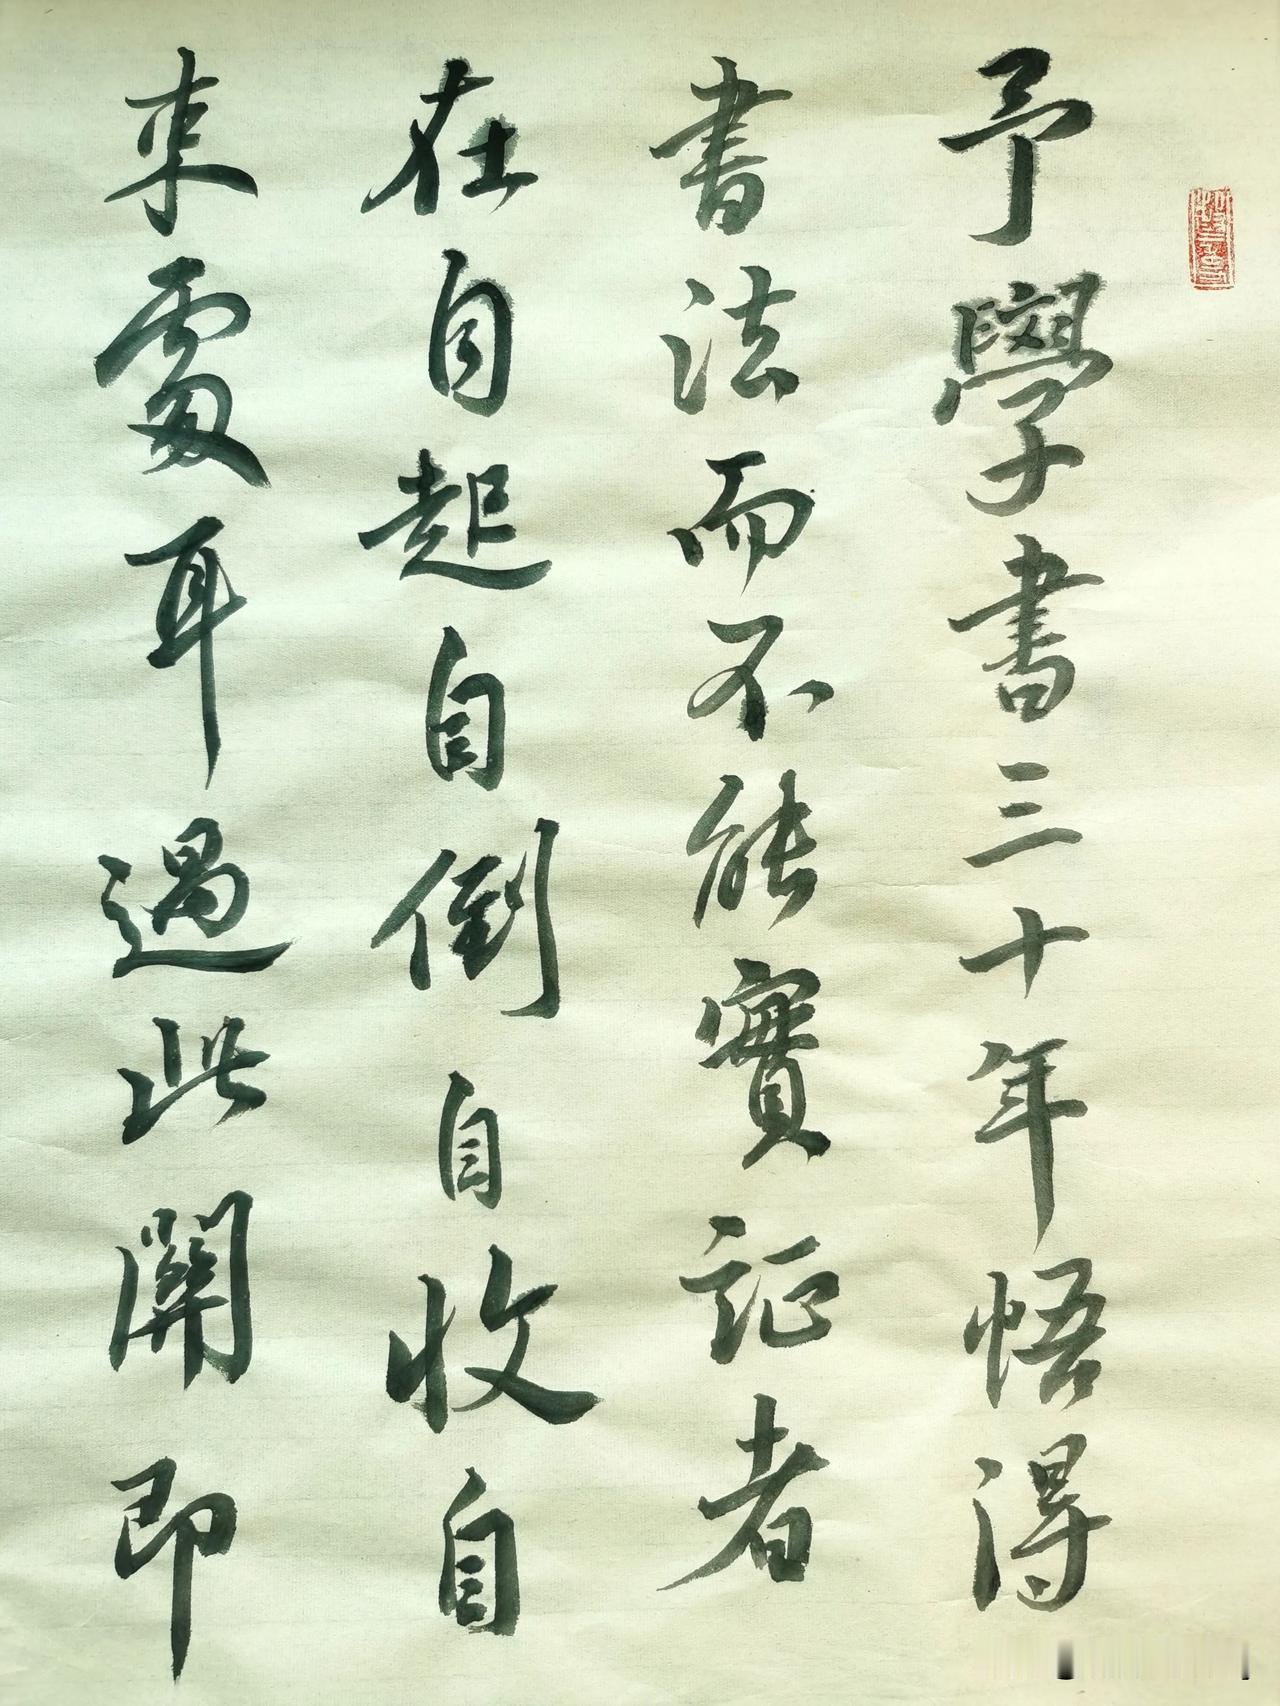 予學書三十年悟得
書法而不能實証者
在自起自倒自收自
来處耳過此關即